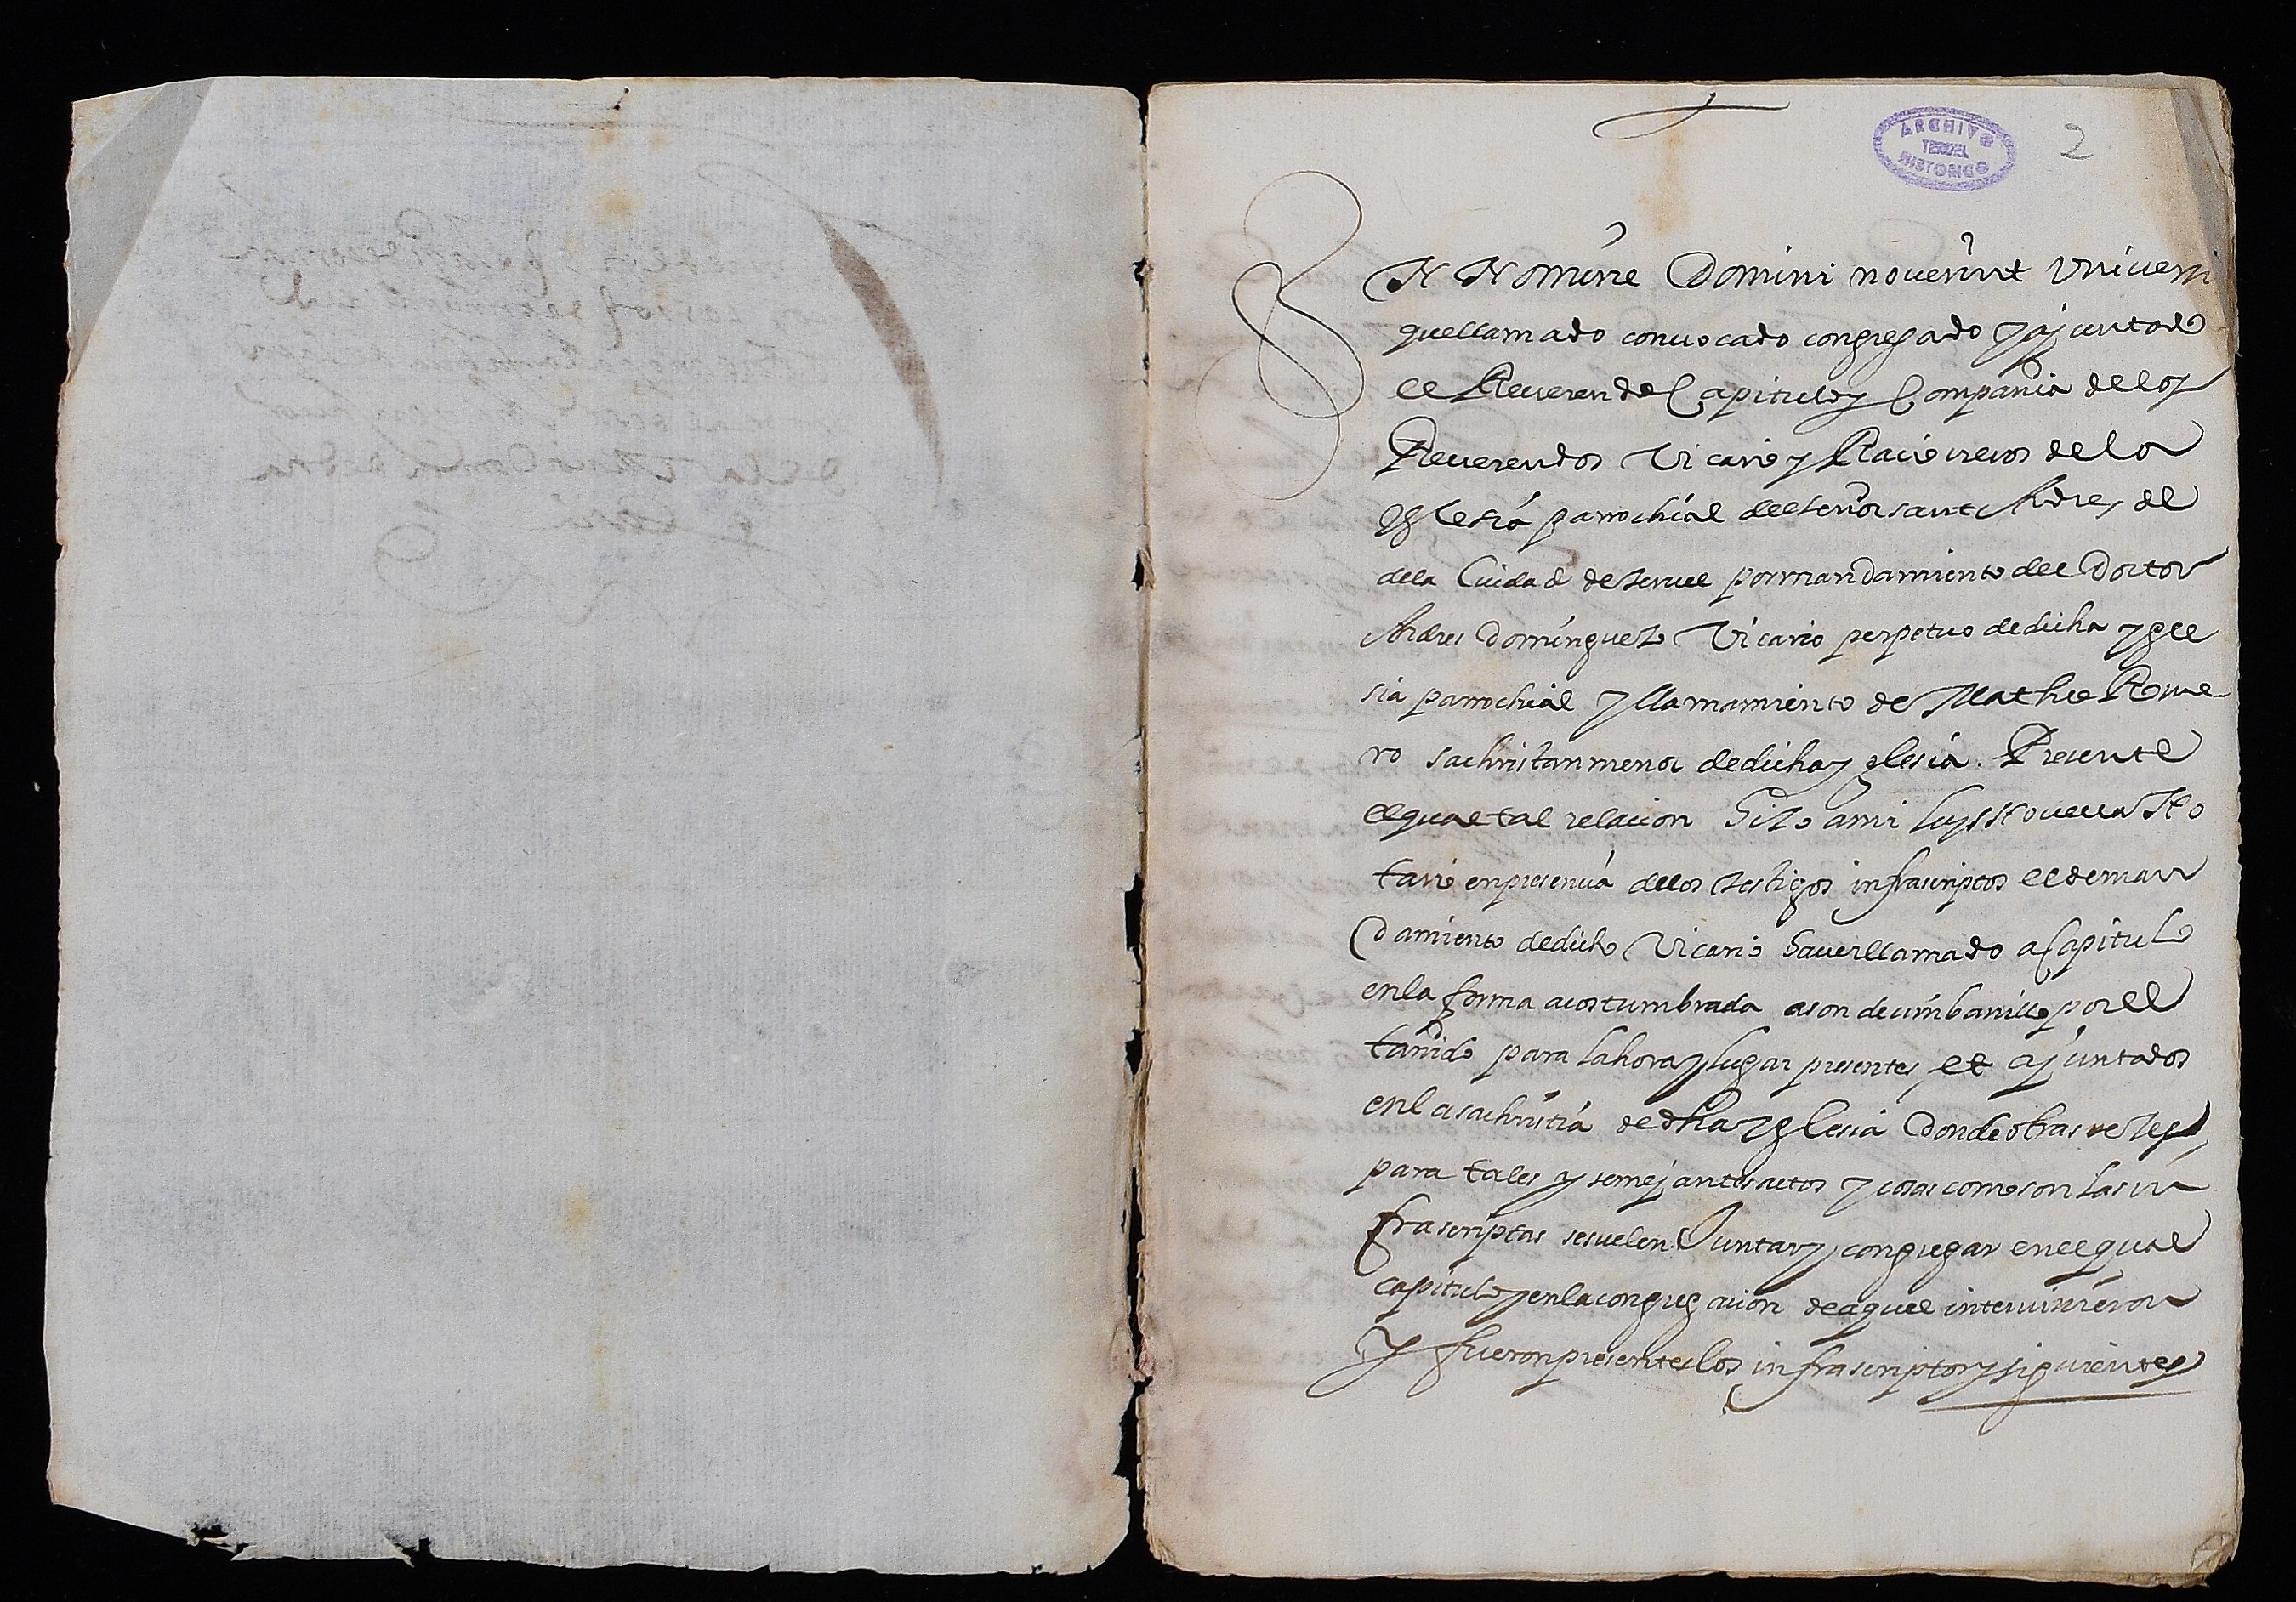 ARCHIVO
TERUEL
HISTORICO
2
IN Nomine Domini nouerint Vniuersi
que llamado conuocado congregado y ajuntado
el Reuerendo Capitulo y Compañia de los
Reuerendos Vicario y Racioneros de la
Yglesia parrochial del señor sant Andres de
dela Ciudad de teruel por mandamiento del Doctor
Andres Dominguez Vicario perpetuo de dicha ygle
sia parrochial y llamamiento de Matheo Rome
ro sachristan menor de dicha yglesia. Presente
el qual tal relacion hizo a mi Luys Nouella No
tario en presencia delos testigos infrascriptos el de man
damiento de dicho Vicario hauer llamado a Capitulo
en la forma acostumbrada a son de cimbanillo por el
tañido para la hora y lugar presentes, et ajuntados
en la sachristia de dha yglesia donde otras vezes
para tales y semejantes actos y cosas como son las in
frascriptas se suelen Juntar y congregar en el qual
capitulo y en la congregacion de aquel interuinieron
Y fueron presentes los infrascriptos y siguientes